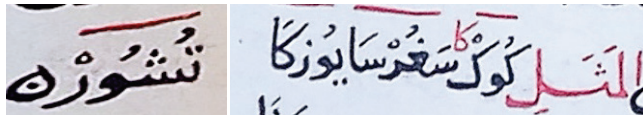 المَثَلِ كُوكْكَا سَغُرْسَا يُوزكَا
تُشُورْن